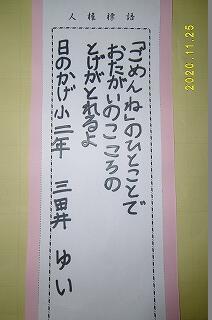 人権標語
「ごめんね」のひとことで
おたがいのこころの
とげがとれるよ
日のかげ小二年 三田井 ゆい
2020.11.25